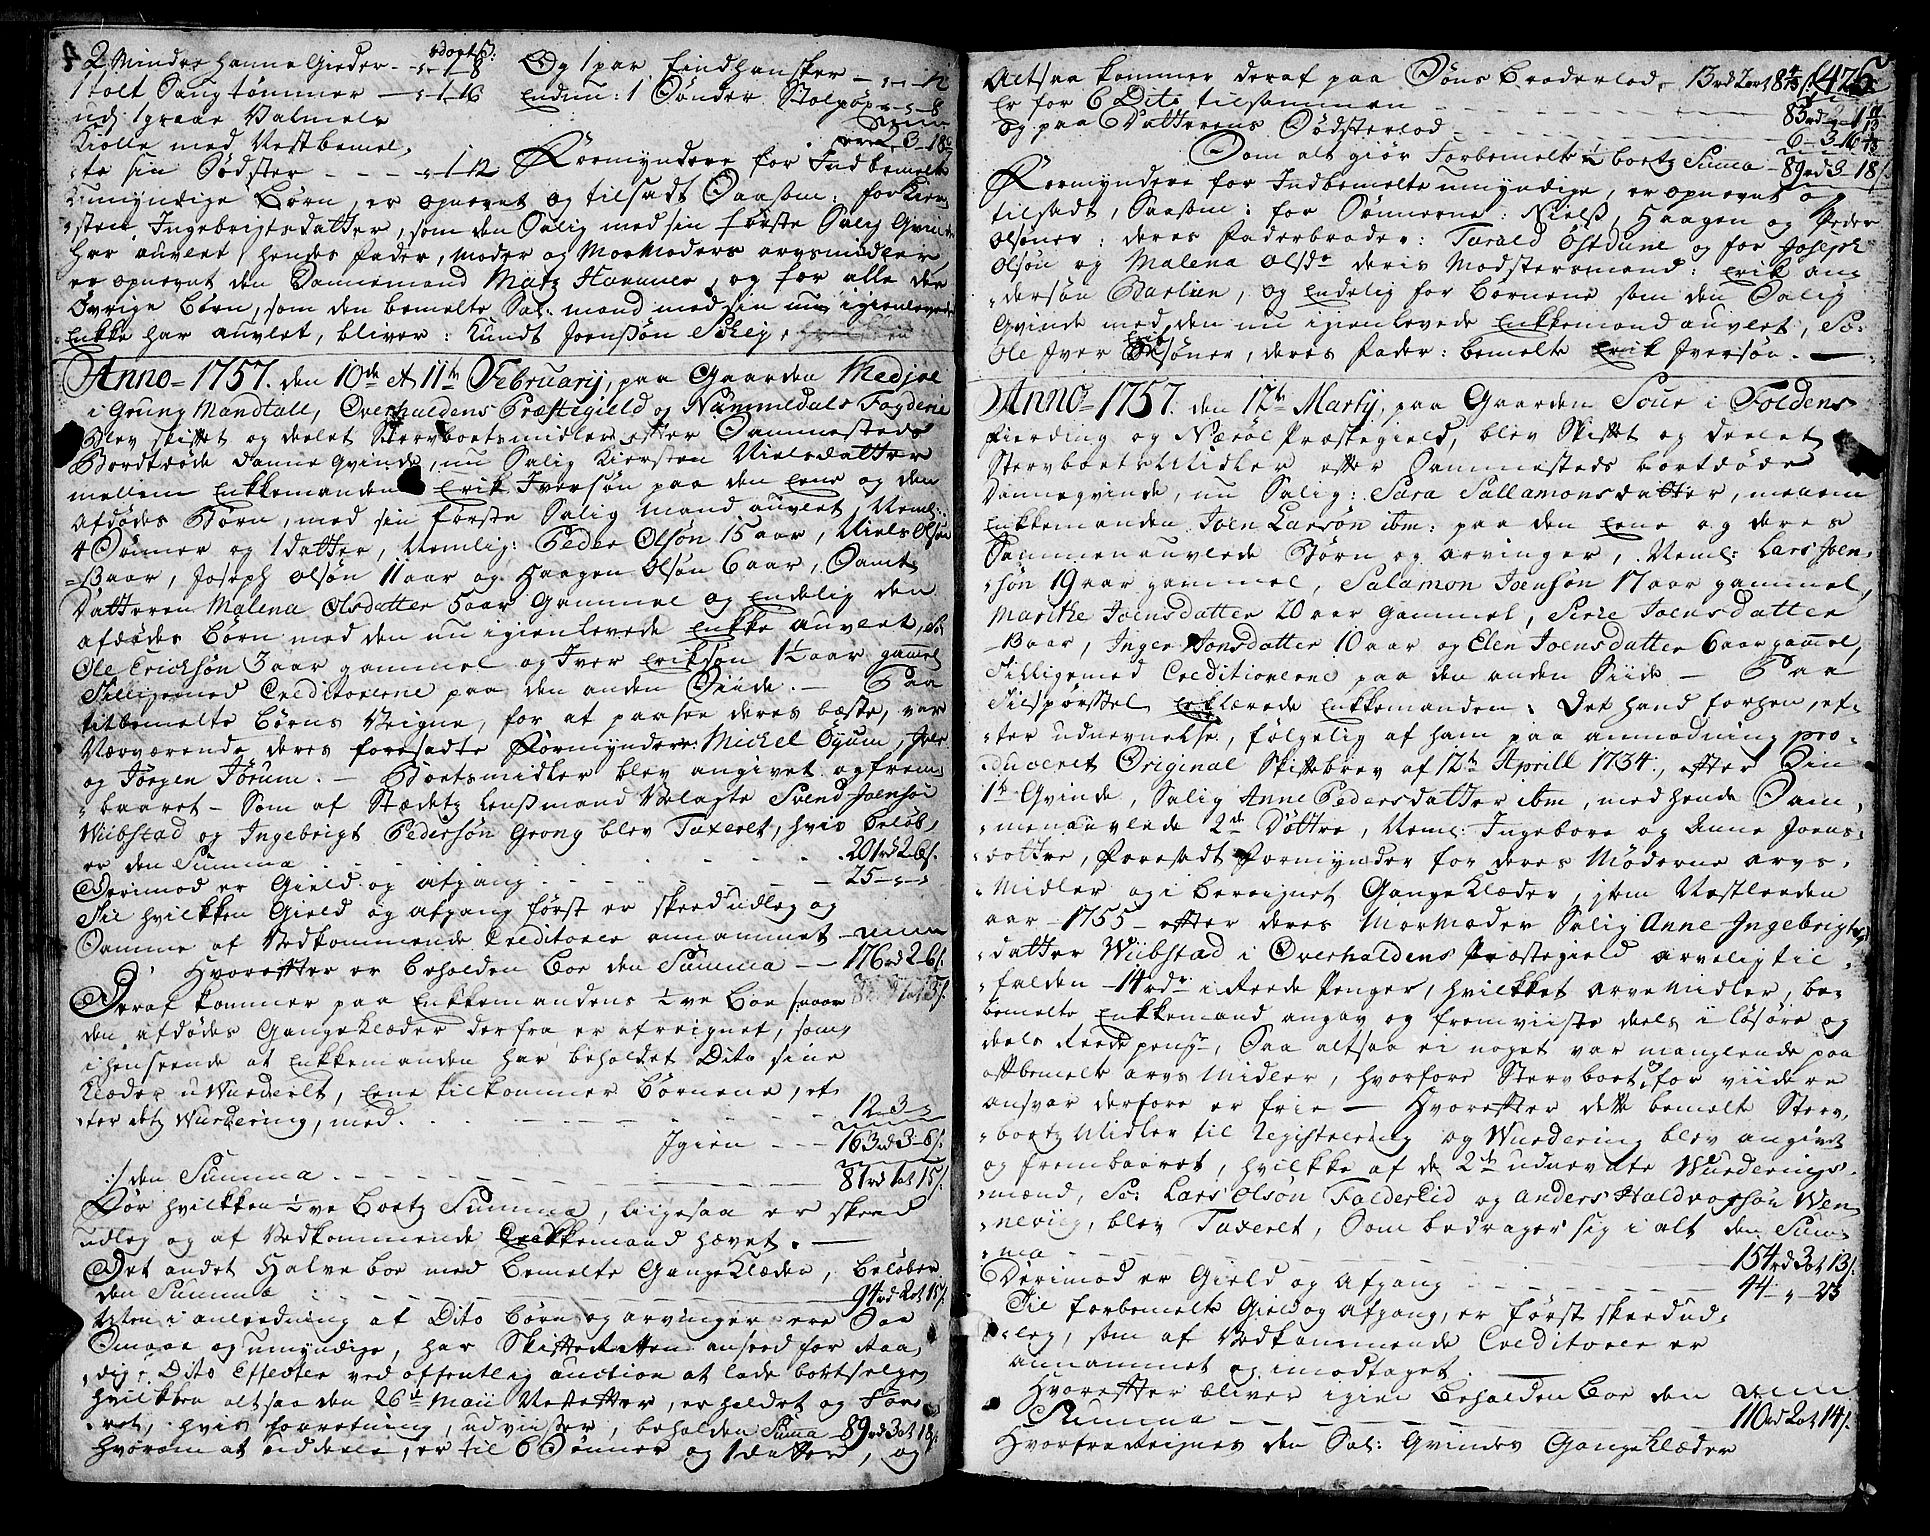 2 Mindre hanna Gieder - " - 1 - 8
1 tolt Sangtømmer - " - 1 - 16
ud: 1 graae Valmels
Kiolle med Vestbemel,
te sin Sødster - - - " - 1 - 12
Og 1 par Eindhansker - " - " - 12
Endnu: 1 Sønder - " - " - 8
3 - 18
Formyndere for Indbemelte
Umyndige Børn, er opnevnt og tilsadt Saasom: for Kier,
sten Ingebrigtsdatter, som den Salig med sin første Salig Gvinde
har auvlet, hendes Fader, Moder og MorModers arvsmidler
er opnevnt den Dannemand Matz Hammer, og for alle de
Øvrige Børn, som den bemelte Sal: mand med sin nu igienlevende
Enkke har auvlet, bliver: Knudt Joenssøn
Anno - 1757. den 10de et 11te Februarij, paa Gaarden Medjae
i Grung Mandtall, Overhaldens Præstegield og Nummedals Fogderie
Blev skiftet og deelet Stervboetsmidler efter Sammesteds
Bordtdøde Danne Gvinde, nu Salig Kiersten Nielsdatter
mellem Enkkemanden Erik Iversøn paa den Eene og den
Afdødes Børn, med sin første Salig Mand auvlet, Neml:
4 Sønner og 1 datter, Nemlig: Peder Olsøn 15 aar, Niels Olsøn
13 aar, Joseph Olsøn 11 aar og Haagen Olsøn 6 aar, Samt
Datteren Malena Olsdatter 5 aar Gammel og Endelig den
afdødes Børn med den nu igienlevede Enkke auvlet, So:
Ole Erichsøn 3 aar gammel og Iver Eriksøn 1½ aar gamel
Tilligemed Creditorerne paa den anden Siide. - Paa
titbemelte Børns Veigne, for at paasee deres bæste, var
Nærværende deres foresadte Formyndere: Michel Øyum,
og Jørgen Jørum. - Boetsmidler blev angivet og frem,
baaret - Som af Stædetz Lensmand Velagte Svend Joensøn
Wiibstad og Ingebrigt Pedersøn Grong blev Taxeret, hvis beløb
er den Summa - - - 201rd 2 6s.
Derimod er Gield og afgang - - - 25 - " - "
Til hvilkken Gield og Afgang først er skeed udleg og
Samme af Vedkommende Creditorer annammet
Hvorefter er beholden Boe den Summa - - 176rd 2 6s.
Deraf kommer paa Enkkemandens ½ve Boe
den afdødes Gangeklæder derfra er afreignet, som
i henseende at Enkkemanden har beholdet Dito sine
Klæder uWurderlt, Eene tilkommer Børnene, ef,
ter detz Wurdering, med - - - 12 - 3 - "
Igien - - - 163rd 3 - 6s.
:/ den Summa - - - 81rd 1ot 15s.
Før hvilkken ½ve Boetz Summa, ligesaa er skeed
udleg og af Vedkommende Enkkemand hævet. -
Det andet Halve boe med bemelte Gangeklæder, beløber
den Summa - - - 94rd 2ot 15s.
Men i anledning af Dito Børn og arvinger ere Saa
Smaae og umyndige, har Skifteretten anseed for Raa,
dig, Dito Effecter ved offentlig auction at lade bortselge,
hvilkken altsaa den 26de Maii Nestefter, er holdet og For,
ret, hvis forretning, udviiser, beholden Suma - 89rd 3ot 18s.
hvorom at siddele, er til 6 Sønner og 1 datter, og
Altsaa kommer deraf paa Søns Broderlod - 13rd 2ort 8 4/13s. 426
Er for 6 Dito tilsammen - - - 83rd 2 - 1 11/13
og paa Datterens Sødsterlod - - - 6 - 3 - 16 2/13
Som alt giør Forbemelte ½ boetz Suma - 89rd 3 - 18s.
Formyndere for Indbemelte umyndige, er opnevnt og
tilsadt, Saasom: for Sønnerne: Nielss, Haagen og Peder
Olsøner: deres Faderbroder: Tarald Østdune og for Joseph
Olsøn og Malena Olsdr. deris Modstersmand: Erik An,
dersøn Barlien, og Endelig for Børnene som den Salig
Gvinde med den nu igienlevede Enkkemand auvlet, So:
Ole Iver Ericsøner, deres Fader: bemelte Erik Iversøn. -
Anno - 1757. den 12te Martij, paa Gaarden Soue i Foldens
Fierding og Nærøe Præstegield, blev Skiftet og deelet
Stervboets Midler efter Sammesteds bortdøde
Dannegvinde, nu Salig: Sara Sallamonsdatter, mellem
Enkkemanden Joen Larsøn ibm: paa den Eene og deres
Sammenauvlede Børn og arvinger, Neml: Lars Joen,
søn 19 aar gammel, Salamon Joensøn 17 aar gammel,
Marithe Joensdatter 20 aar Gammel, Sirie Joensdatter
13 aar, Inger Jonsdatter 10 aar og Elen Joensdatter 6 aar gamel,
Tilligemed Creditorerne paa den anden Siide - Paa
Tilspørssel Erklærede Enkkemanden: Det hand forhen, ef,
ter udnevnelse, følgelig af ham paa anmodning pro,
duceret Original Skiftebrev af 12te Aprill 1734, efter Sin
1te Gvinde, Salig Anne Pedersdatter ibm, med hende Sam,
menauvlede 2de Døttre, Neml: Ingebore og Anne Joens,
døttre, Foresadt Formynder for deres Møderne arvs,
Midler og i bereignet Gangeklæder, jtem Næstleeden
aar - 1755 - efter deres MorModer Salig Anne Ingebrigts,
datter Wiibstad i Overhaldens Præstegield arveligtil,
falden - 14rdr i Reede Penger, hvilkket arveMidler, be,
bemelte Enkkemand angav og fremviiste deels i løsøre og
deels Reede penge, Saa altsaa ei noget var manglende paa
oftbemelte arvsMidler, hvorfore Stervboet, for viidere
ansvar derfore er frie - Hvorefter dette bemelte Sterv,
boetz Midler til Registrering og Wurdering blev angivet
og frembaaret, hvilkke af de 2de udnevnte Wurderings,
mænd, So: Lars Olsøn FolderEid og Anders Haldvorsøn Wen,
neviig, blev Taxeret, Som bedrager sig i alt den Sum,
ma - - - 154rd 3ot 13s.
Derimod er Gield og Afgang - - - 44 - " - 23
Til forbemelte Gield og Afgang, er først skeed ud,
leg, som af Vedkommende Creditorer er
annammet og imodtaget
Hvorefter bliver igien beholden Boe den
Summa - - - 110rd 2ot 14s.
Hvorfra Reignes den Sal: Gvindes Gangeklæder